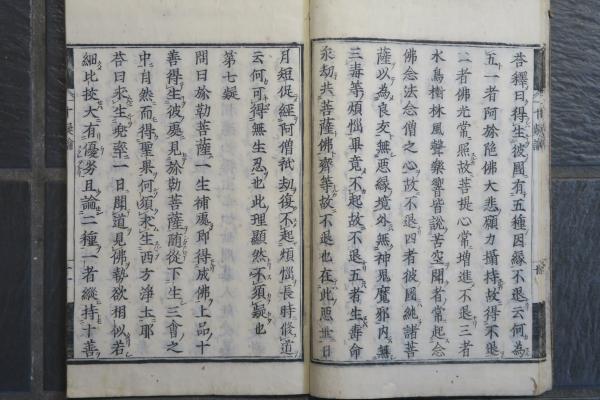 答釋曰得生彼國有五種因緣不退云何為
五一者阿彌陀佛大悲願力攝持故得不退
二者佛光常照故菩提心常增進不退三者
水鳥樹林風聲樂響皆說苦空聞者常起念
佛念法念僧之心故不退四者彼國純諸菩
薩以為良友無惡緣境外無神鬼魔邪內無
三毒等煩惱畢竟不起故不退五者生壽命
永劫共菩薩佛齊等故不退也在此惡世日
月短促經阿僧祇劫復不起煩惱長時修道
云何可得無生忍也此理顯然不須疑也
第七疑
問曰彌勒菩薩一生補處即得成佛上品十
善得生彼處見彌勒菩薩隨從下生三會之
中自然而得聖果何須求生西方淨土耶
答曰求生兜率一日聞道見佛勢欲相似若
細比挍大有優劣且論二種一者縱持十善
十疑論